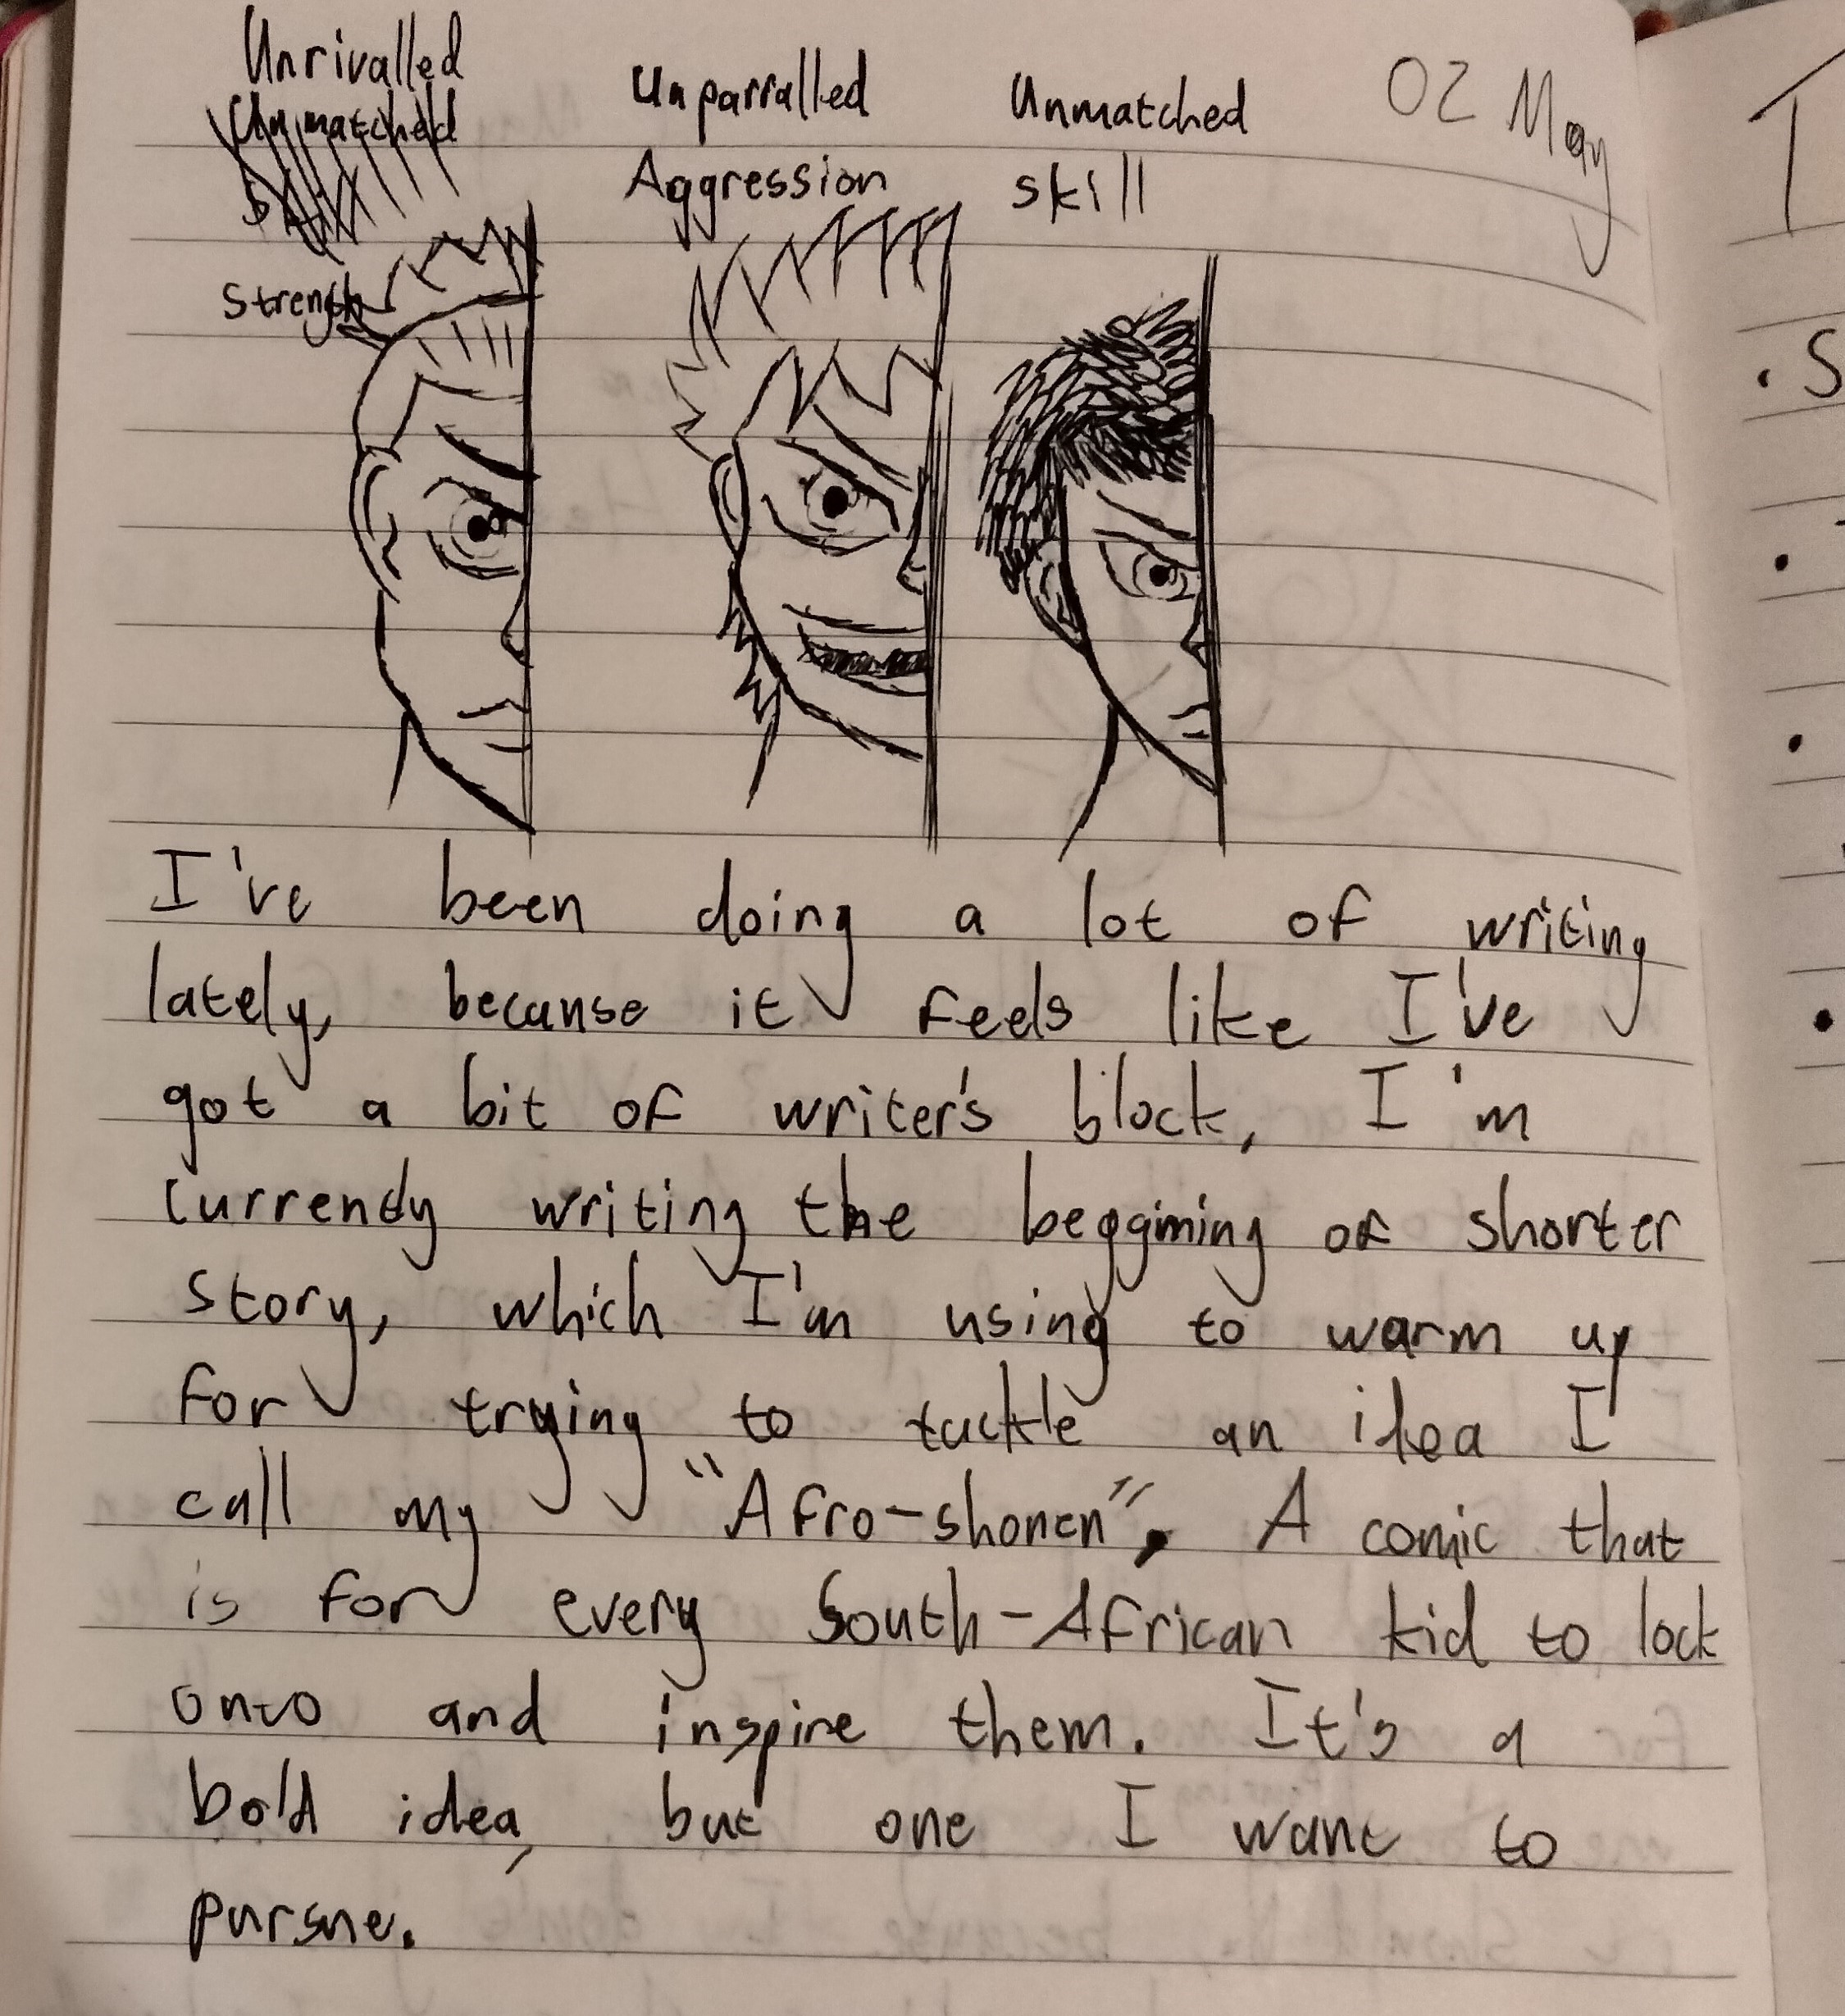 Unrivalled
Unmatched
Skill
Strength
Unparralled
Aggression
Unmatched
skill
02 May
I've been doing a lot of writing
lately, because it feels like I've
got a bit of writer's block, I'm
currently writing the beggining of shorter
story, which I'm using to warm up
for trying to tackle an idea I
call my "Afro-shonen", A comic that
is for every South-African kid to lock
onto and inspire them. It's a
bold idea, but one I want to
pursue.